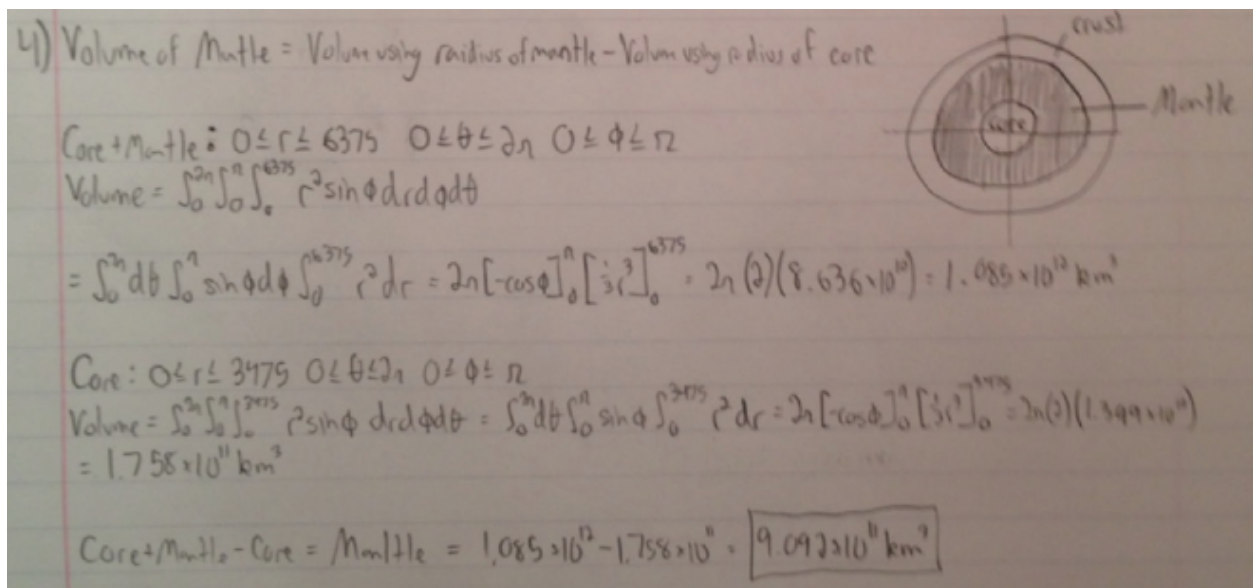 4) Volume of Mntle = Volume using raidius of mantle - Volum using radius of core
crust
Mantle
core
Core+Mantle: 0≤r≤6375 0≤θ≤2π 0≤φ≤π
Volume = ∫₀^2π ∫₀^π ∫₀^6375 r² sinφ dr dφ dθ
= ∫₀^2π dθ ∫₀^π sinφ dφ ∫₀^6375 r² dr = 2π[-cosφ]₀^π [⅓r³]₀^6375 = 2π(2)(8.636×10¹⁰) = 1.085×10¹² km³
Core: 0≤r≤3475 0≤θ≤2π 0≤φ≤π
Volume = ∫₀^2π ∫₀^π ∫₀^3475 r² sinφ dr dφ dθ = ∫₀^2π dθ ∫₀^π sinφ ∫₀^3475 r² dr = 2π[-cosφ]₀^π [⅓r³]₀^3475 = 2π(2)(1.399×10¹⁰)
= 1.758×10¹¹ km³
Core+Mantle-Core = Mantle = 1.085×10¹² - 1.758×10¹¹ = 9.092×10¹¹ km³